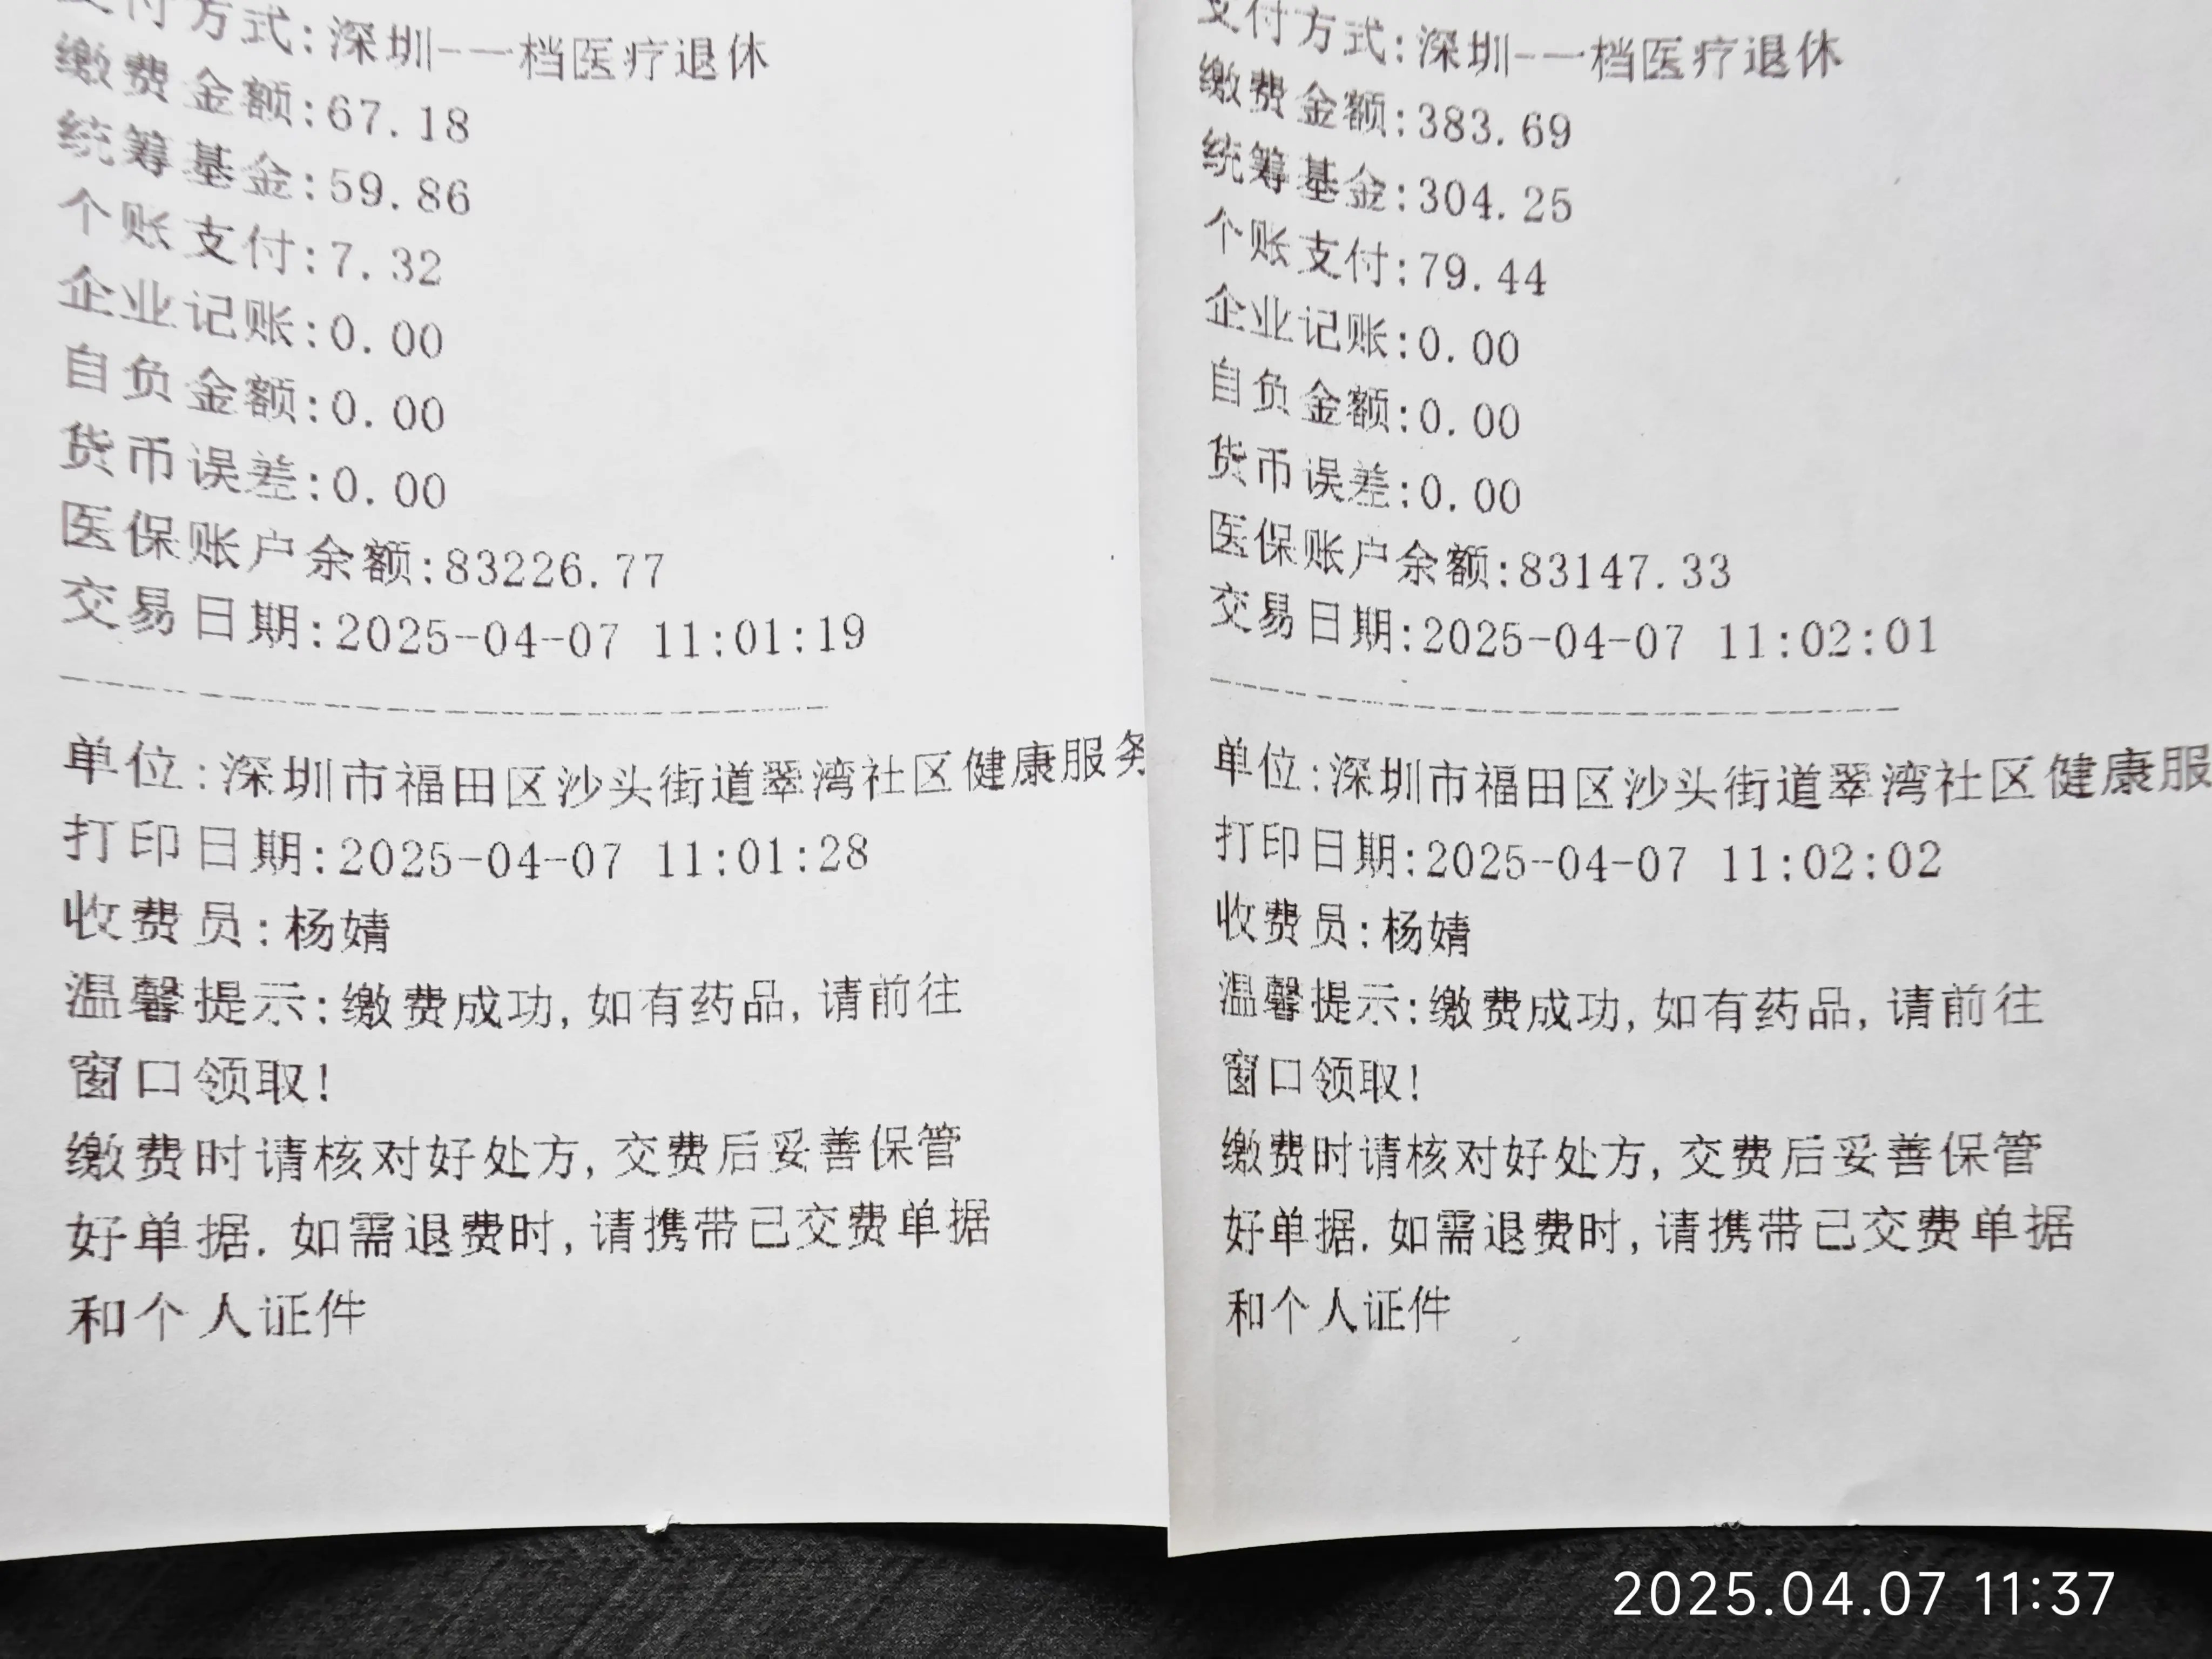 支付方式:深圳-一档医疗退休
缴费金额:67.18
统筹基金:59.86
个账支付:7.32
企业记账:0.00
自负金额:0.00
货币误差:0.00
医保账户余额:83226.77
交易日期:2025-04-07 11:01:19
单位:深圳市福田区沙头街道翠湾社区健康服务
打印日期:2025-04-07 11:01:28
收费员:杨婧
温馨提示:缴费成功,如有药品,请前往
窗口领取!
缴费时请核对好处方,交费后妥善保管
好单据.如需退费时,请携带已交费单据
和个人证件
支付方式:深圳-一档医疗退休
缴费金额:383.69
统筹基金:304.25
个账支付:79.44
企业记账:0.00
自负金额:0.00
货币误差:0.00
医保账户余额:83147.33
交易日期:2025-04-07 11:02:01
单位:深圳市福田区沙头街道翠湾社区健康服
打印日期:2025-04-07 11:02:02
收费员:杨婧
温馨提示:缴费成功,如有药品,请前往
窗口领取!
缴费时请核对好处方,交费后妥善保管
好单据.如需退费时,请携带已交费单据
和个人证件
2025.04.07 11:37